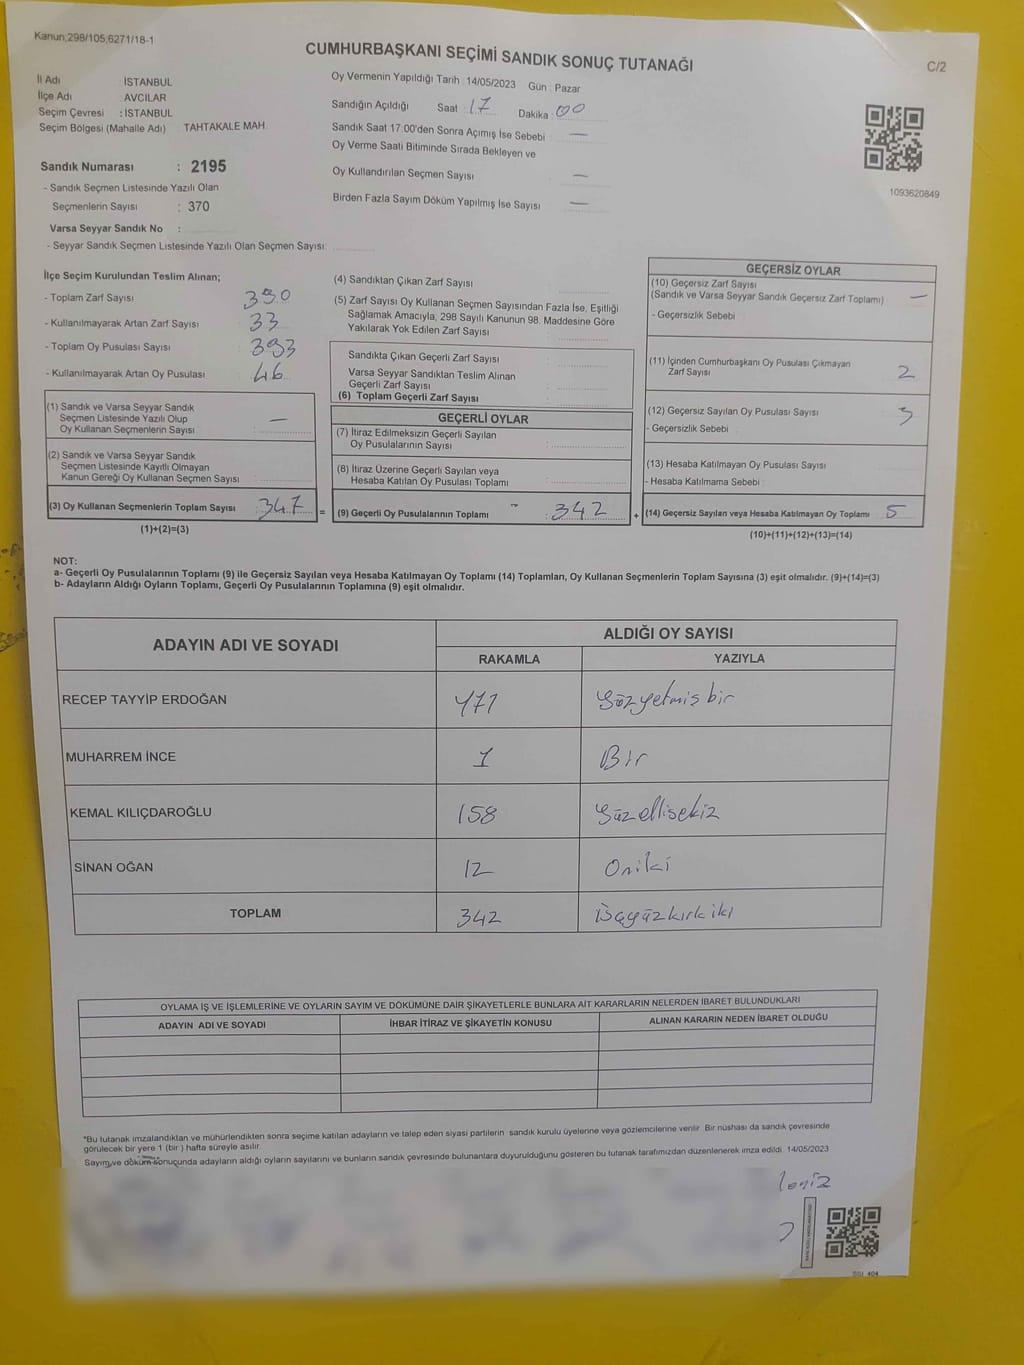 Kanun;298/105,6271/18-1
CUMHURBAŞKANI SEÇİMİ SANDIK SONUÇ TUTANAĞI
C/2
İl Adı : İSTANBUL
İlçe Adı : AVCILAR
Seçim Çevresi : İSTANBUL
Seçim Bölgesi (Mahalle Adı) : TAHTAKALE MAH.
Sandık Numarası : 2195
- Sandık Seçmen Listesinde Yazılı Olan
Seçmenlerin Sayısı : 370
Varsa Seyyar Sandık No :
- Seyyar Sandık Seçmen Listesinde Yazılı Olan Seçmen Sayısı:
Oy Vermenin Yapıldığı Tarih : 14/05/2023 Gün : Pazar
Sandığın Açıldığı Saat : 17 Dakika : 00
Sandık Saat 17:00'den Sonra Açımış İse Sebebi : —
Oy Verme Saati Bitiminde Sırada Bekleyen ve
Oy Kullandırılan Seçmen Sayısı : —
Birden Fazla Sayım Döküm Yapılmış İse Sayısı : —
1093620849
İlçe Seçim Kurulundan Teslim Alınan;
- Toplam Zarf Sayısı
- Kullanılmayarak Artan Zarf Sayısı : 33
- Toplam Oy Pusulası Sayısı : 393
- Kullanılmayarak Artan Oy Pusulası : 46
(1) Sandık ve Varsa Seyyar Sandık
Seçmen Listesinde Yazılı Olup
Oy Kullanan Seçmenlerin Sayısı : —
(2) Sandık ve Varsa Seyyar Sandık
Seçmen Listesinde Kayıtlı Olmayan
Kanun Gereği Oy Kullanan Seçmen Sayısı :
(3) Oy Kullanan Seçmenlerin Toplam Sayısı : 347 =
(1)+(2)=(3)
(4) Sandıktan Çıkan Zarf Sayısı :
(5) Zarf Sayısı Oy Kullanan Seçmen Sayısından Fazla İse, Eşitliği
Sağlamak Amacıyla, 298 Sayılı Kanunun 98. Maddesine Göre
Yakılarak Yok Edilen Zarf Sayısı :
Sandıkta Çıkan Geçerli Zarf Sayısı :
Varsa Seyyar Sandıktan Teslim Alınan
Geçerli Zarf Sayısı :
(6) Toplam Geçerli Zarf Sayısı :
GEÇERLİ OYLAR
(7) İtiraz Edilmeksizin Geçerli Sayılan
Oy Pusulalarının Sayısı :
(8) İtiraz Üzerine Geçerli Sayılan veya
Hesaba Katılan Oy Pusulası Toplamı :
(9) Geçerli Oy Pusulalarının Toplamı : 342 +
GEÇERSİZ OYLAR
(10) Geçersiz Zarf Sayısı
(Sandık ve Varsa Seyyar Sandık Geçersiz Zarf Toplamı) : —
- Geçersizlik Sebebi :
(11) İçinden Cumhurbaşkanı Oy Pusulası Çıkmayan
Zarf Sayısı : 2
(12) Geçersiz Sayılan Oy Pusulası Sayısı : 3
- Geçersizlik Sebebi :
(13) Hesaba Katılmayan Oy Pusulası Sayısı :
- Hesaba Katılmama Sebebi :
(14) Geçersiz Sayılan veya Hesaba Katılmayan Oy Toplamı : 5
(10)+(11)+(12)+(13)=(14)
NOT:
a- Geçerli Oy Pusulalarının Toplamı (9) ile Geçersiz Sayılan veya Hesaba Katılmayan Oy Toplamı (14) Toplamları, Oy Kullanan Seçmenlerin Toplam Sayısına (3) eşit olmalıdır. (9)+(14)=(3)
b- Adayların Aldığı Oyların Toplamı, Geçerli Oy Pusulalarının Toplamına (9) eşit olmalıdır.
ADAYIN ADI VE SOYADI
ALDIĞI OY SAYISI
RAKAMLA YAZIYLA
RECEP TAYYİP ERDOĞAN 171 yüzyetmiş bir
MUHARREM İNCE 1 Bir
KEMAL KILIÇDAROĞLU 158 yüzellisekiz
SİNAN OĞAN 12 Oniki
TOPLAM 342 üçyüzkırkiki
OYLAMA İŞ VE İŞLEMLERİNE VE OYLARIN SAYIM VE DÖKÜMÜNE DAİR ŞİKAYETLERLE BUNLARA AİT KARARLARIN NELERDEN İBARET BULUNDUKLARI
ADAYIN ADI VE SOYADI İHBAR İTİRAZ VE ŞİKAYETİN KONUSU ALINAN KARARIN NEDEN İBARET OLDUĞU
*Bu tutanak imzalandıktan ve mühürlendikten sonra seçime katılan adayların ve talep eden siyasi partilerin sandık kurulu üyelerine veya gözlemcilerine verilir. Bir nüshası da sandık çevresinde
görülecek bir yere 1 (bir) hafta süreyle asılır.
Sayım ve döküm sonucunda adayların aldığı oyların sayılarını ve bunların sandık çevresinde bulunanlara duyurulduğunu gösteren bu tutanak tarafımızdan düzenlenerek imza edildi. 14/05/2023